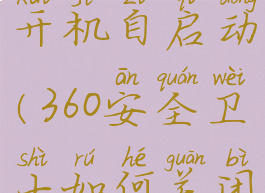 开机自启动
ān quán wèi
(360安全卫
shì rú hé guān bì
士如何关闭